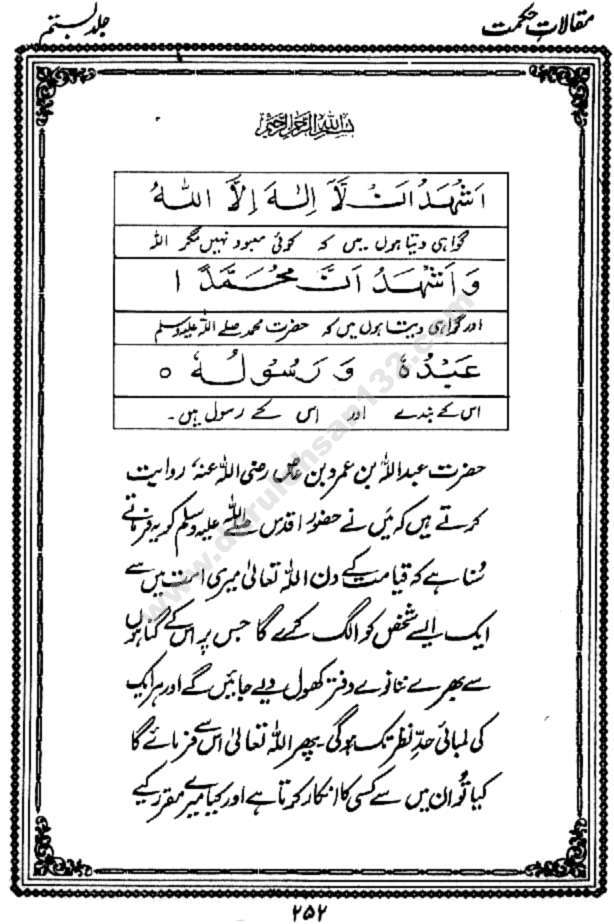 مقالاتِ حکمت
جلد بستم
بسم الله الرحمن الرحيم
اَشْهَدُ اَنْ لَّآ اِلٰهَ اِلَّا اللّٰهُ
گواہی دیتا ہوں میں کہ کوئی معبود نہیں مگر اللہ
وَ اَشْهَدُ اَنَّ مُحَمَّدًا
اور گواہی دیتا ہوں میں کہ حضرت محمد صلے اللہ علیہ وسلم
عَبْدُهٗ وَ رَسُوْلُهٗ ○
اس کے بندے اور اس کے رسول ہیں۔
حضرت عبداللہ بن عمرو بن عاص رضی اللہ عنہٗ روایت
کرتے ہیں کہ میں نے حضور اقدس صلے اللہ علیہ وسلم کو یہ فرماتے
سُنا ہے کہ قیامت کے دن اللہ تعالیٰ میری امت میں سے
ایک ایسے شخص کو الگ کرے گا جس پر اس کے گناہوں
سے بھرے ننانوے دفتر کھول دیے جائیں گے اور ہر ایک
کی لمبائی حدِّ نظر تک ہوگی پھر اللہ تعالیٰ اس سے فرمائے گا
کیا تُو ان میں سے کسی کا انکار کرتا ہے اور کیا میرے مقرر کیے
۲۵۲